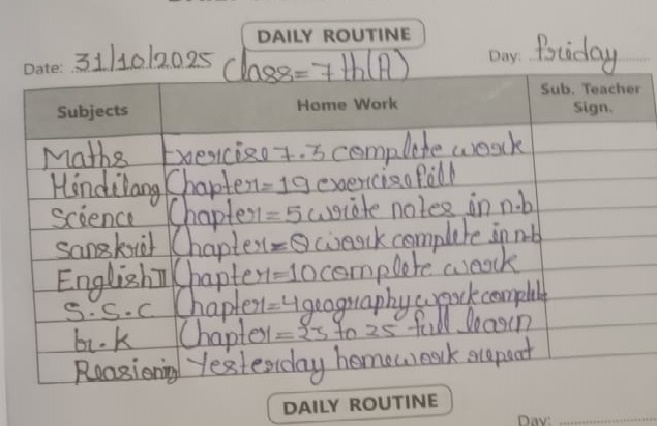 DAILY ROUTINE
Date: 31/10/2025 Class=7th(A) Day: Friday
Subjects Home Work Sub. Teacher Sign.
Maths Exercise 7.3 complete work
Hindilang Chapter=19 exercise fill
Science Chapter=5 write notes in n.b
Sanskrit Chapter= work complete in n.b
English II Chapter=10 complete work
S.S.C Chapter=4 geography work complete
G.K Chapter=23 to 25 full learn
Reasioning Yesterday homework repeat
DAILY ROUTINE
Day: